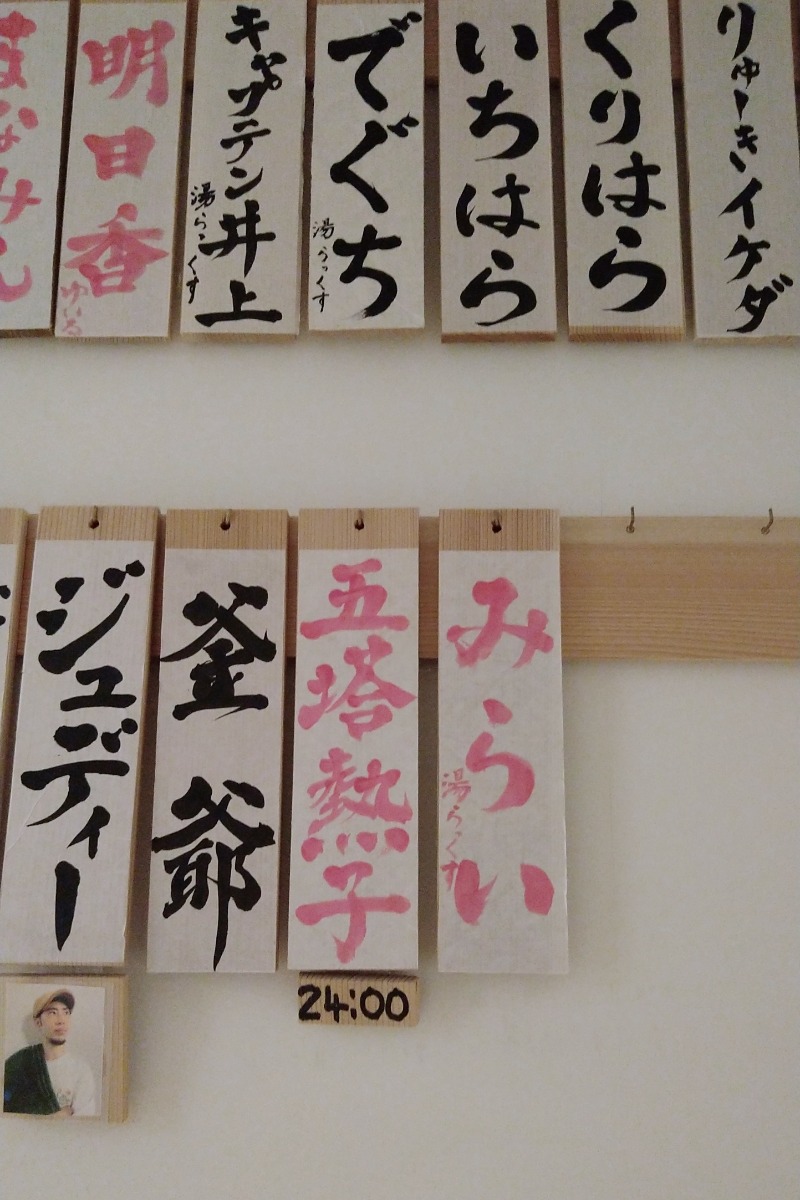 りゅーきイケダ
くりはら
いちはら
でぐち
湯らっくす
キャプテン井上
湯らっくす
明日香
ゆいる
まなみん
みらい
湯らっくす
五塔熱子
24:00
釜爺
ジュディー